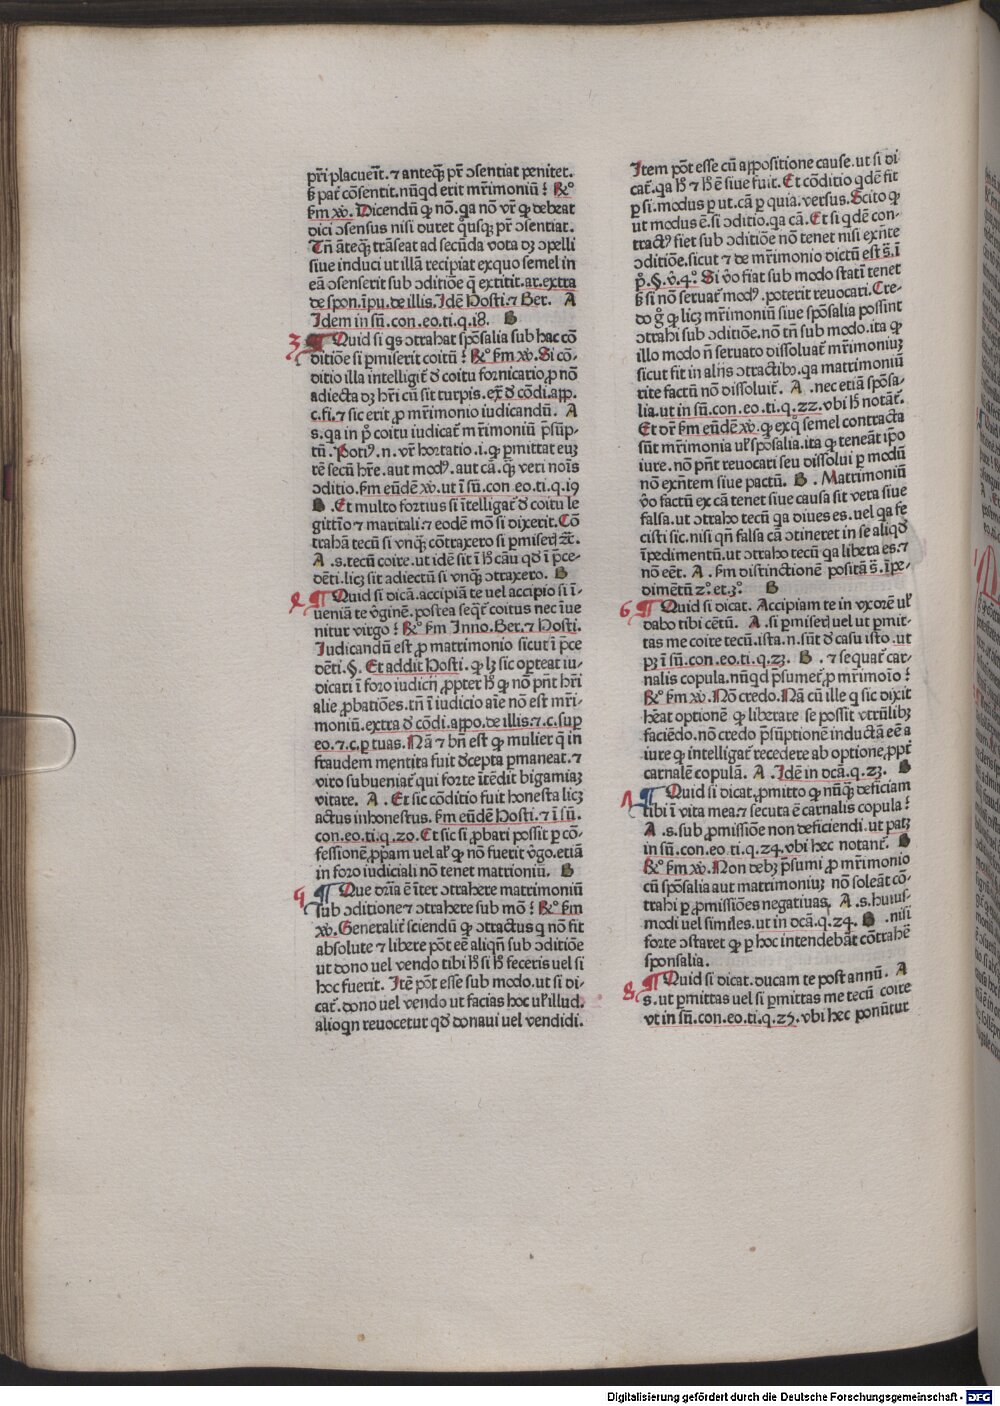 pr̄i placueīt. ⁊ anteq̄ꝫ pr̄ ↄsentiat penitet.
ꝫ pat̄ cōsentit. nūqd erit mr̄imoniū ? R̄º
ẜm xv. Dicendū ꝙ nō. qa nō vr̄ ꝙ debeat
dici ↄsensus nisi duret qͦusqꝫ pr̄ ↄsentiat.
Tn̄ āteq̄ꝫ trāseat ad secūda vota dꝫ ↄpelli
siue induci ut illā recipiat exquo semel in
eā ↄsenserit sub ↄditiōe q̄ extitit. ar. extra
de spon. īpu. de illis. Idē Hosti. ⁊ Ber. A
Idem in sū. con. eo. ti. q. 18. B
3 ¶ Quid si qs ↄtrahat spōsalia sub hac cō
ditiōe si ꝑmiserit coitū ? R̄º ẜm xv. Si cō-
ditio illa intelligit̄ ď coitu fornicario ꝓ nō
adiecta dꝫ hr̄i cū sit turpis. ex̄. ď cōdi. app.
c. fi. ⁊ sic erit ꝓ mr̄imonio iudicandū. A
s. qa in pͦ coitu iudicat̄ mr̄imoniū p̄sūp-
tū. Potiꝰ. n. vr̄ hortatio. i. ꝙ ꝑmittat euꝫ
tē secū hr̄e. aut modꝰ. aut cā. q̄ꝫ veri noīs
ↄditio. ẜm eūdē xv. ut ī sū. con. eo. ti. q. 19
B . Et multo fortius si ītelligat̄ ď coitu le
gittīo ⁊ maritali. ⁊ eodē mō si dixerit. Cō
trahā tecū si vnqꝫ cōtraxero si ꝑmiserꝭ ⁊c̄.
A . s. tecū coire. ut idē sit ī hͦ cāu qd ī p̄ce-
dēti. licꝫ sit adiectū si vnqꝫ ↄtraxero. B
4 ¶ Quid si dicā. accipiā te uel accipio si ī-
ueniā te v̄ginē. postea seqt̄ coitus nec īue
nitur virgo ? R̄º ẜm Inno. Ber. ⁊ Hosti.
Iudicandū est ꝓ matrimonio sicut ī p̄ce
dēti. §. Et addit Hosti. ꝙ lꝫ sic opteat iu-
dicari ī foro iudicij ꝓpter hͦ ꝙ nō pn̄t hr̄i
alie ꝓbatiōes. tn̄ ī iudicio aīe nō est mr̄i-
moniū. extra ď cōdi. appo. de illis. ⁊. c. suꝑ
eo. ⁊. c. ꝑ tuas. Nā ⁊ bn̄ est ꝙ mulier q̄ in
fraudem mentita fuit ďcepta ꝑmaneat. ⁊
viro subueniat̄ qui forte ītēdit bigamiaꝫ
vitare. A . Et sic cōditio fuit honesta licꝫ
actus inhonestus. ẜm eūdē Hosti. ⁊ ī sū.
con. eo. ti. q. 20. Et sic si ꝓbari possit ꝑ cō-
fessionē ꝓpriam uel al̄ ꝙ nō fuerit v̄go. etiā
in foro iudiciali nō tenet matrioniū. B
5 ¶ Que dr̄ia ē īter ↄtrahere matrimoniū
sub ↄditione ⁊ ↄtrahere sub mō ? R̄º ẜm
xv. Generalit̄ sciendū ꝙ ↄtractus q nō fit
absolute ⁊ libere pōt eē aliqn̄ sub ↄditiōe
ut dono uel vendo tibi hͦ si hͦ feceris uel si
hoc fuerit. Itē pōt esse sub modo. ut si di-
cat̄. dono uel vendo ut facias hoc ul̄ illud.
alioqn reuocetur qd donaui uel vendidi.
Item pōt esse cū appositione cause. ut si di
cat̄. qa hͦ ⁊ hͦ ē siue fuit. Et cōditio qdē fit
ꝑ si. modus ꝑ ut. cā ꝑ quia. versus. Scito ꝙ
ut modus ē. si ↄditio. qa cā. Et si qdē con-
tractꝰ fiet sub ↄditiōe nō tenet nisi exn̄te
ↄditiōe. sicut ⁊ de mr̄imonio dictū est s̄. ī
pͦ. §. v̄. 4º. Si v̄o fiat sub modo statī tenet
ꝫ si nō seruat̄ modꝰ. poterit reuocari. Cre-
do gͦ ꝙ licꝫ mr̄imoniū siue spōsalia possint
ↄtrahi sub ↄditiōe. nō tn̄ sub modo. ita ꝙ
illo modo n̄ seruato dissoluat̄ mr̄imoniuꝫ
sicut fit in alijs ↄtractibꝰ. qa matrimoniū
rite factū nō dissoluit̄. A . nec etiā spōsa-
lia. ut in sū. con. eo. ti. q. 22. vbi hͦ notat̄.
Et dr̄ ẜm eūdē xv. ꝙ exqͦ semel contracta
sūt mr̄imonia ul̄ spōsalia. ita ꝙ teneāt ipo
iure. nō pn̄t reuocari seu dissolui ꝑ modū
nō exn̄tem siue pactū. B . Matrimoniū
v̄o factū ex cā tenet siue causa sit vera siue
falsa. ut ↄtraho tecū qa diues es. uel qa fe
cisti sic. nisi qn̄ falsa cā ↄtineret in se aliqd
īpedimentū. ut ↄtraho tecū qa libera es. ⁊
nō eēt. A . ẜm distinctionē positā s̄. īpe-
dimētū 2º. et. 3º. B
6 ¶ Quid si dicat. Accipiam te in vxorē ul̄
dabo tibi cētū. A . si ꝑmiserꝭ uel ut ꝑmit-
tas me coire tecū. ista. n. sūt ď casu isto. ut
pꝫ ī sū. con. eo. ti. q. 23. B . ⁊ sequat̄ car-
nalis copula. nūqd p̄sumet̄ ꝓ mr̄imoīo ?
R̄º ẜm xv. Nō credo. Nā cū ille q sic dixit
hēat optionē ꝙ liberare se possit vtrūlibꝫ
faciēdo. nō credo p̄sūptionē inductā eē a
iure ꝙ intelligat̄ recedere ab optione ꝓpt̄
carnalē copulā. A . Idē in dcā. q. 23. B
7 ¶ Quid si dicat ꝓmitto ꝙ nūq̄ꝫ deficiam
tibi ī vita mea. ⁊ secuta ē carnalis copula ?
A . s. sub ꝓmissiōe non deficiendi. ut patꝫ
in sū. con. eo. ti. q. 24. vbi hec notant̄. B
R̄º ẜm xv. Non debꝫ p̄sumi ꝓ mr̄imonio
cū spōsalia aut matrimoniuꝫ nō soleāt cō-
trahi ꝑ ꝓmissiōes negatiuas. A . s. huius-
modi uel similes. ut in dcā. q. 24. B . nisi
forte ↄstaret ꝙ ꝑ hoc intendebāt cōtrahē
sponsalia.
8 ¶ Quid si dicat. ducam te post annū. A
s. ut ꝑmittas uel si ꝑmittas me tecū coire
vt in sū. con. eo. ti. q. 25. vbi hec ponūtur
Digitalisierung gefördert durch die Deutsche Forschungsgemeinschaft - DFG